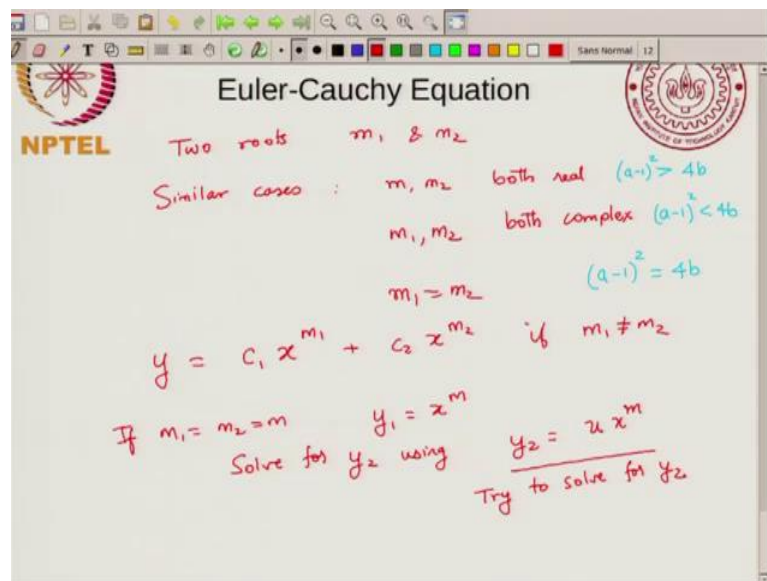 Sans Normal 12
Euler-Cauchy Equation
NPTEL
Two roots m₁ & m₂
Similar cases : m, m₂ both real (a-1)² > 4b
m₁, m₂ both complex (a-1)² < 4b
m₁ = m₂ (a-1)² = 4b
y = C₁ x^m₁ + C₂ x^m₂ if m₁ ≠ m₂
If m₁ = m₂ = m y₁ = x^m
Solve for y₂ using y₂ = u x^m
Try to solve for y₂